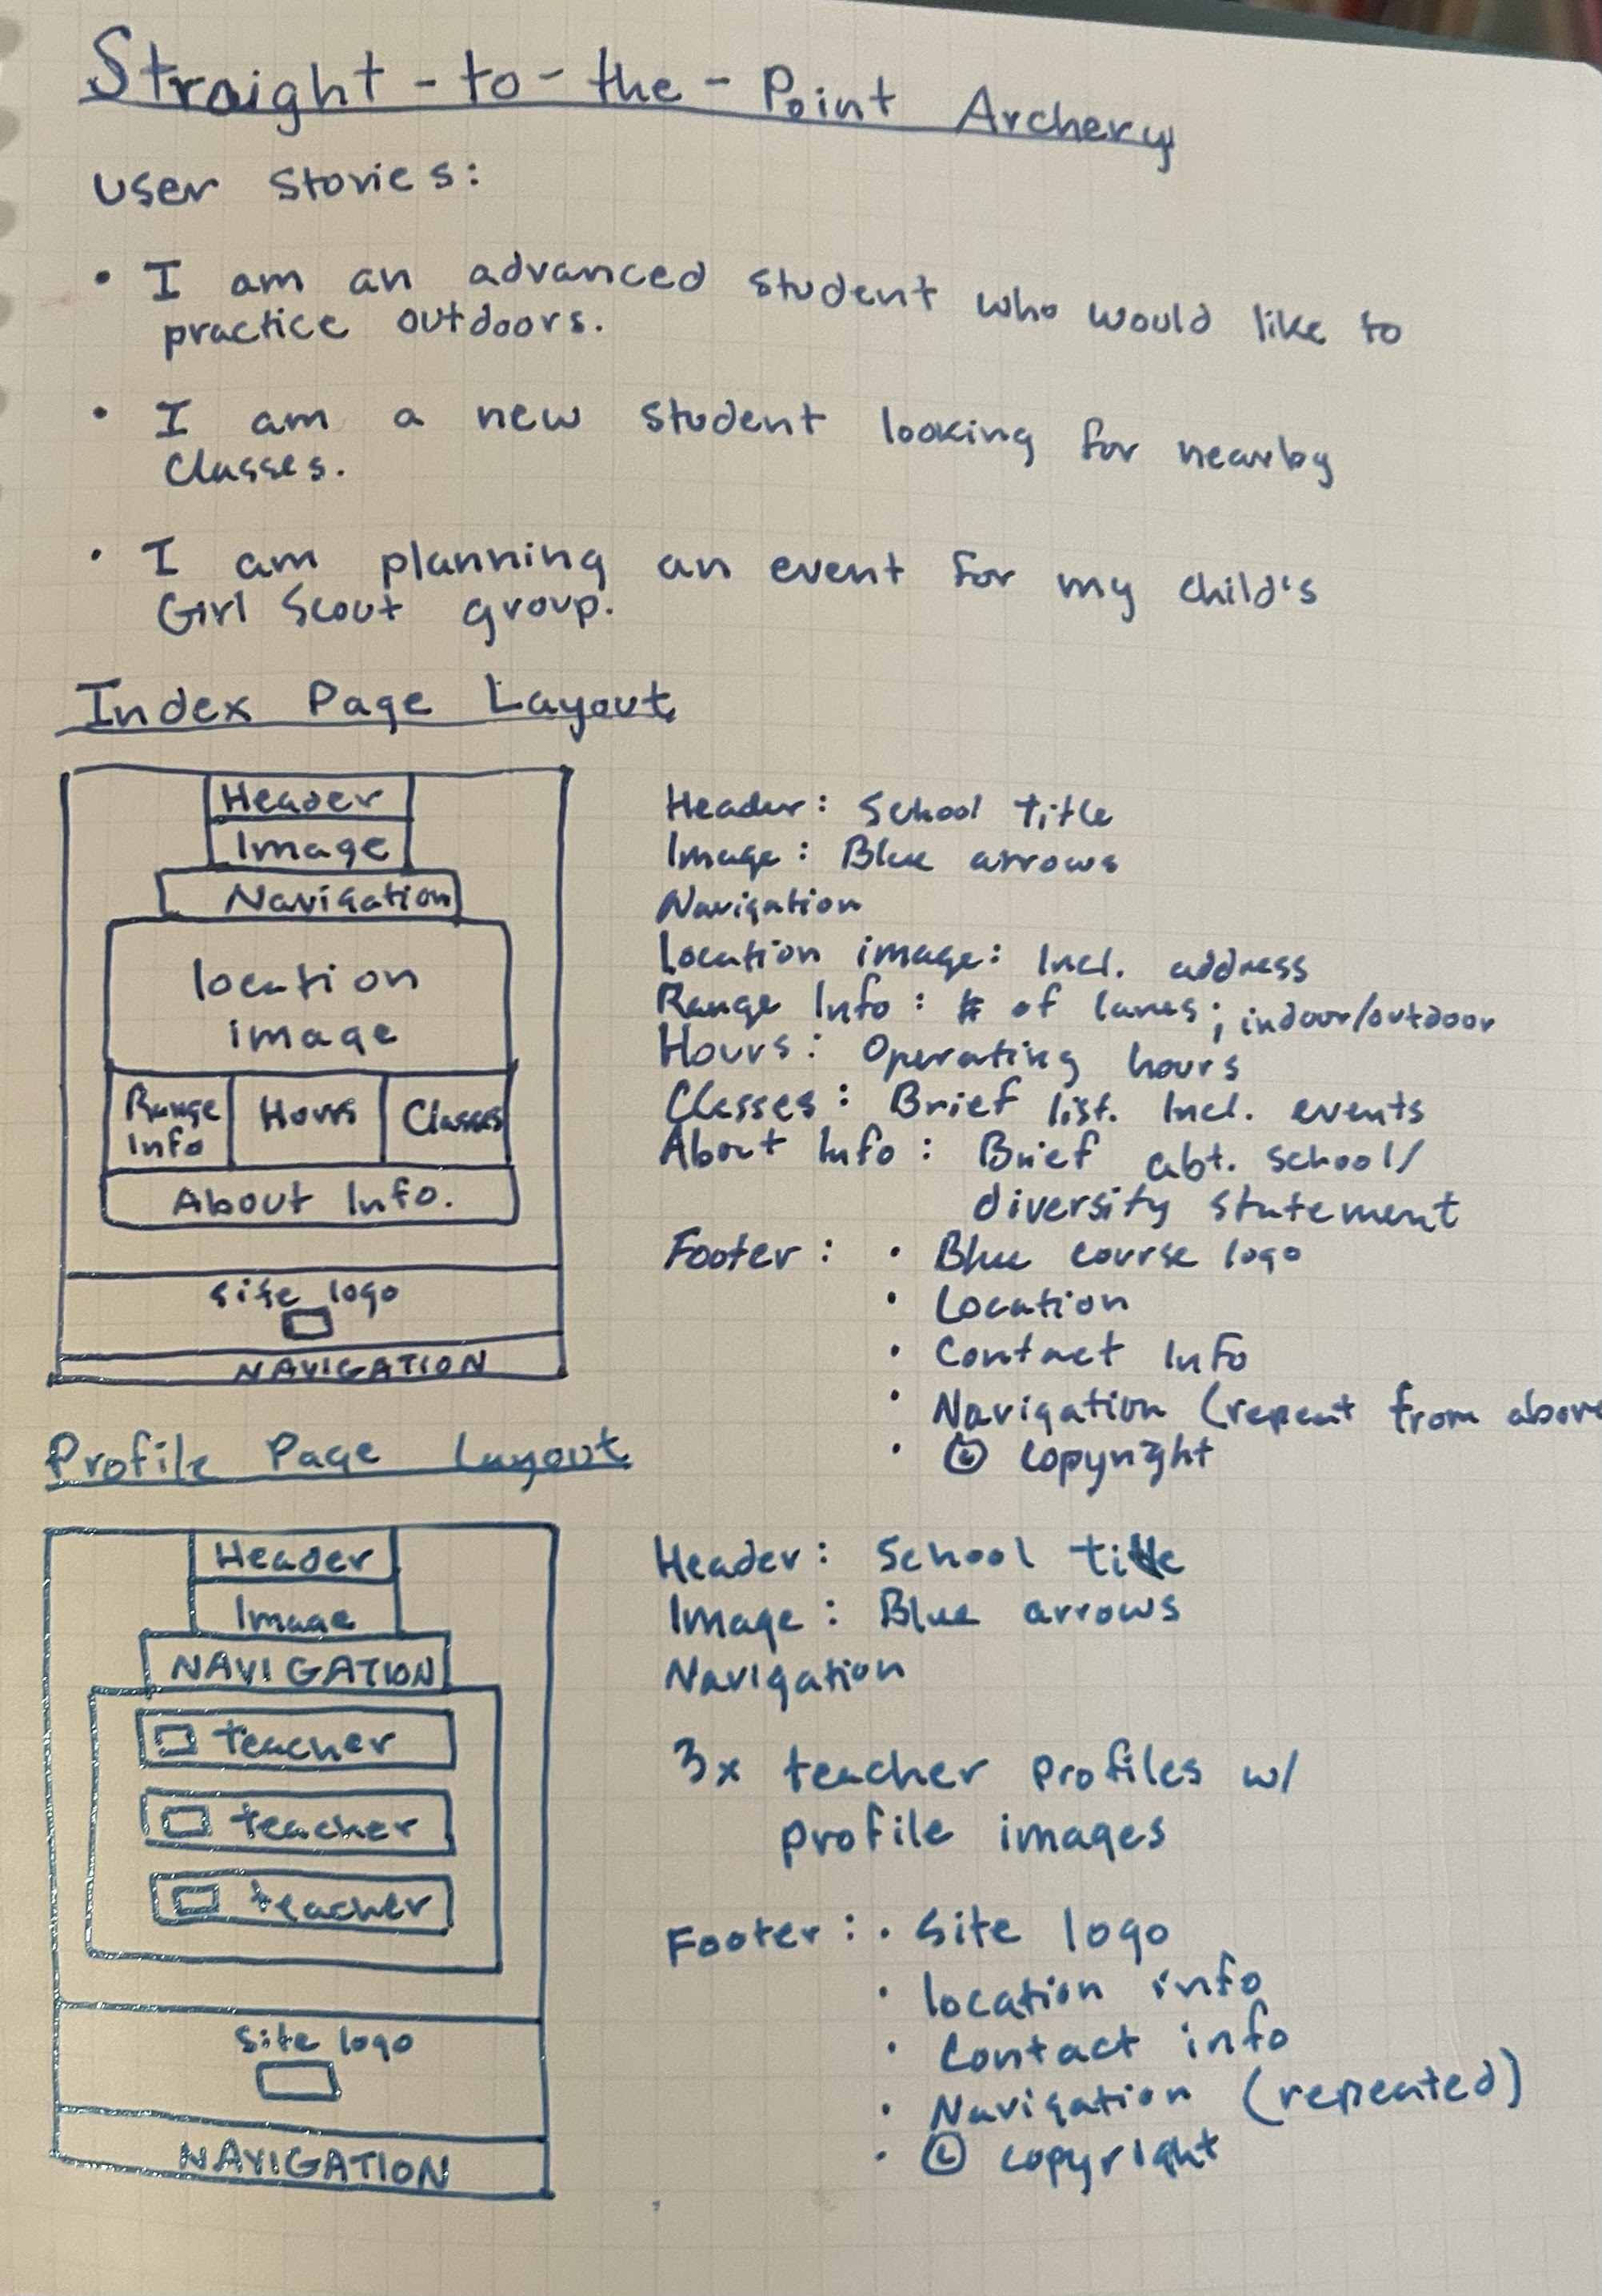 Straight-to-the-Point Archery
User Stories:
• I am an advanced student who would like to
practice outdoors.
• I am a new student looking for nearby
classes.
• I am planning an event for my child's
Girl Scout group.
Index Page Layout
Header
Image
Navigation
location
image
Range
Info
Hours
Classes
About Info.
site logo
NAVIGATION
Header: School title
Image: Blue arrows
Navigation
Location image: Incl. address
Range Info: # of lanes; indoor/outdoor
Hours: Operating hours
Classes: Brief list. Incl. events
About Info: Brief abt. school/
diversity statement
Footer: • Blue course logo
• Location
• Contact Info
• Navigation (repeat from above
• © copyright
Profile Page Layout
Header
Image
NAVIGATION
teacher
teacher
teacher
site logo
NAVIGATION
Header: School title
Image: Blue arrows
Navigation
3x teacher profiles w/
profile images
Footer: • Site logo
• location info
• Contact info
• Navigation (repeated)
• © copyright